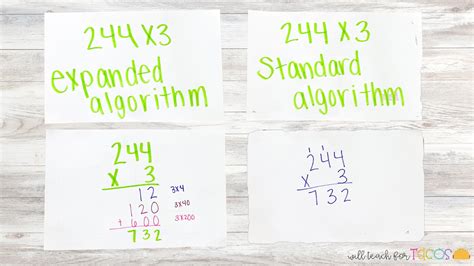 244 x3
expanded
algorithm
244 x3
Standard
algorithm
244
x 3
12 3x4
120 3x40
+ 600 3x200
732
1 1
244
x 3
732
will teach for TACOS